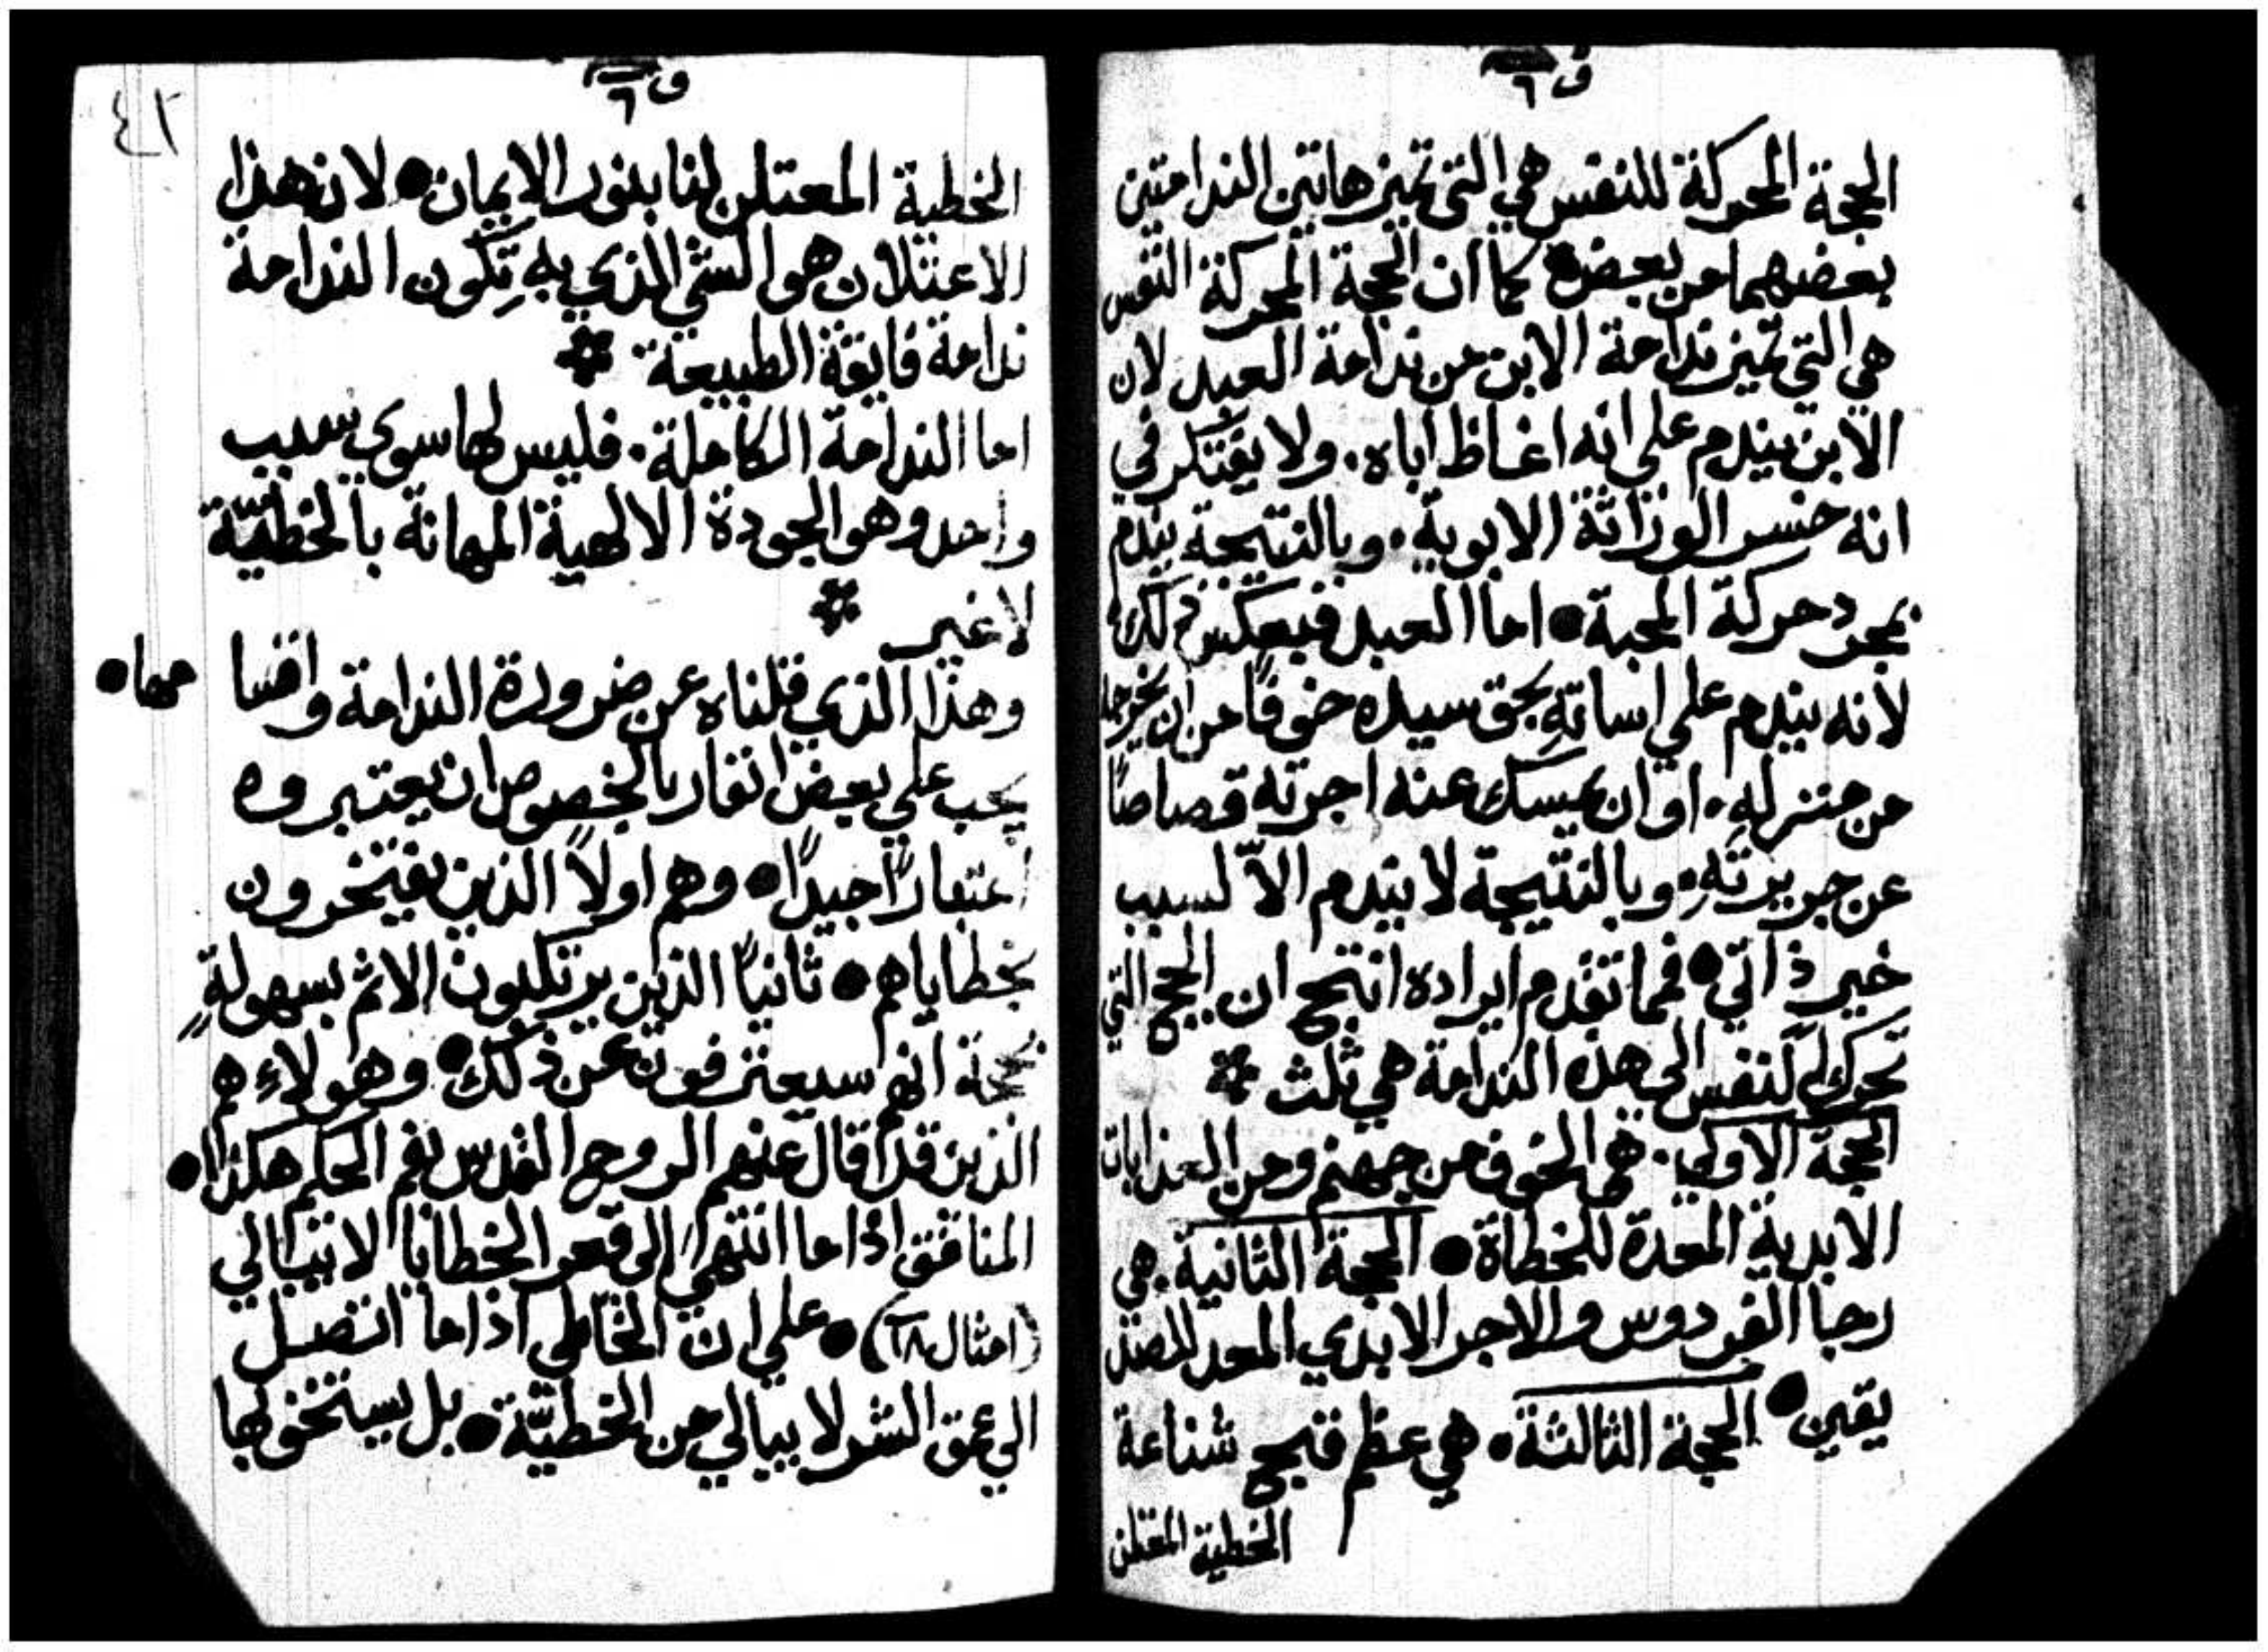 ف ٦
الحجة المحركة للنفس هي التي تميز هاتين الندامتين
بعضهما من بعض كما ان الحجة المحركة النفس
هي التي تميز ندامة الابن من ندامة العبد لان
الابن يندم علي انه اغاظ اباه. ولا يفتكر في
انه خسر الوراثة الابوية. وبالنتيجة يندم
بمجرد حركة المحبة ● اما العبد فبعكس ذلك
لانه يندم علي اساته بحق سيده خوفًا من ان يخرجه
من منزلهِ. او ان يمسك عنه اجرته قصاصًا
عن جريرتهِ. وبالنتيجة لا يندم الاّ لسبب
خير ذاتي ● فمما تقدم ايراده انتج ان الحجج التي
تحرك النفس الى هذه الندامة هي ثلث
الحجة الاولي. هي الخوف من جهنم ومن العذابات
الابدية المعدة للخطاة ● الحجة الثانية. هي
رجا الفردوس والاجر الابدي المعد للصد
يقين ● الحجة الثالثة. هي عظم قبح شناعة
الخطية المعتلن
ف ٦
٤١
الخطية المعتلن لنا بنور الايمان ● لان هذا
الاعتلان هو الشي الذي بهِ تكون الندامة
ندامة فايقة الطبيعة
اما الندامة الكاملة. فليس لها سوي سبب
واحد وهو الجودة الالهية المهانة بالخطيّة
لا غير
وهذا الذي قلناه عن ضرورة الندامة واقسا
مها ●
يجب علي بعض انفار بالخصوص ان يعتبروه
اعتبارًا جيدًا ● وهم اولاً الذين يفتخرون
بخطاياهم ● ثانيًا الذين يرتكبون الاثم بسهولةٍ
بحجة انهم سيعترفون عن ذلك ● وهولاء هم
الذين قد قال عنهم الروح القدس بفم الحكيم هكذا ●
المنافق اذا ما انتهي الى قعر الخطايا لا يبالي
(امثال ١٨) ● علي ان الخاطي اذا ما اتصل
الي عمق الشر لا يبالي من الخطيّة ● بل يستخف بها